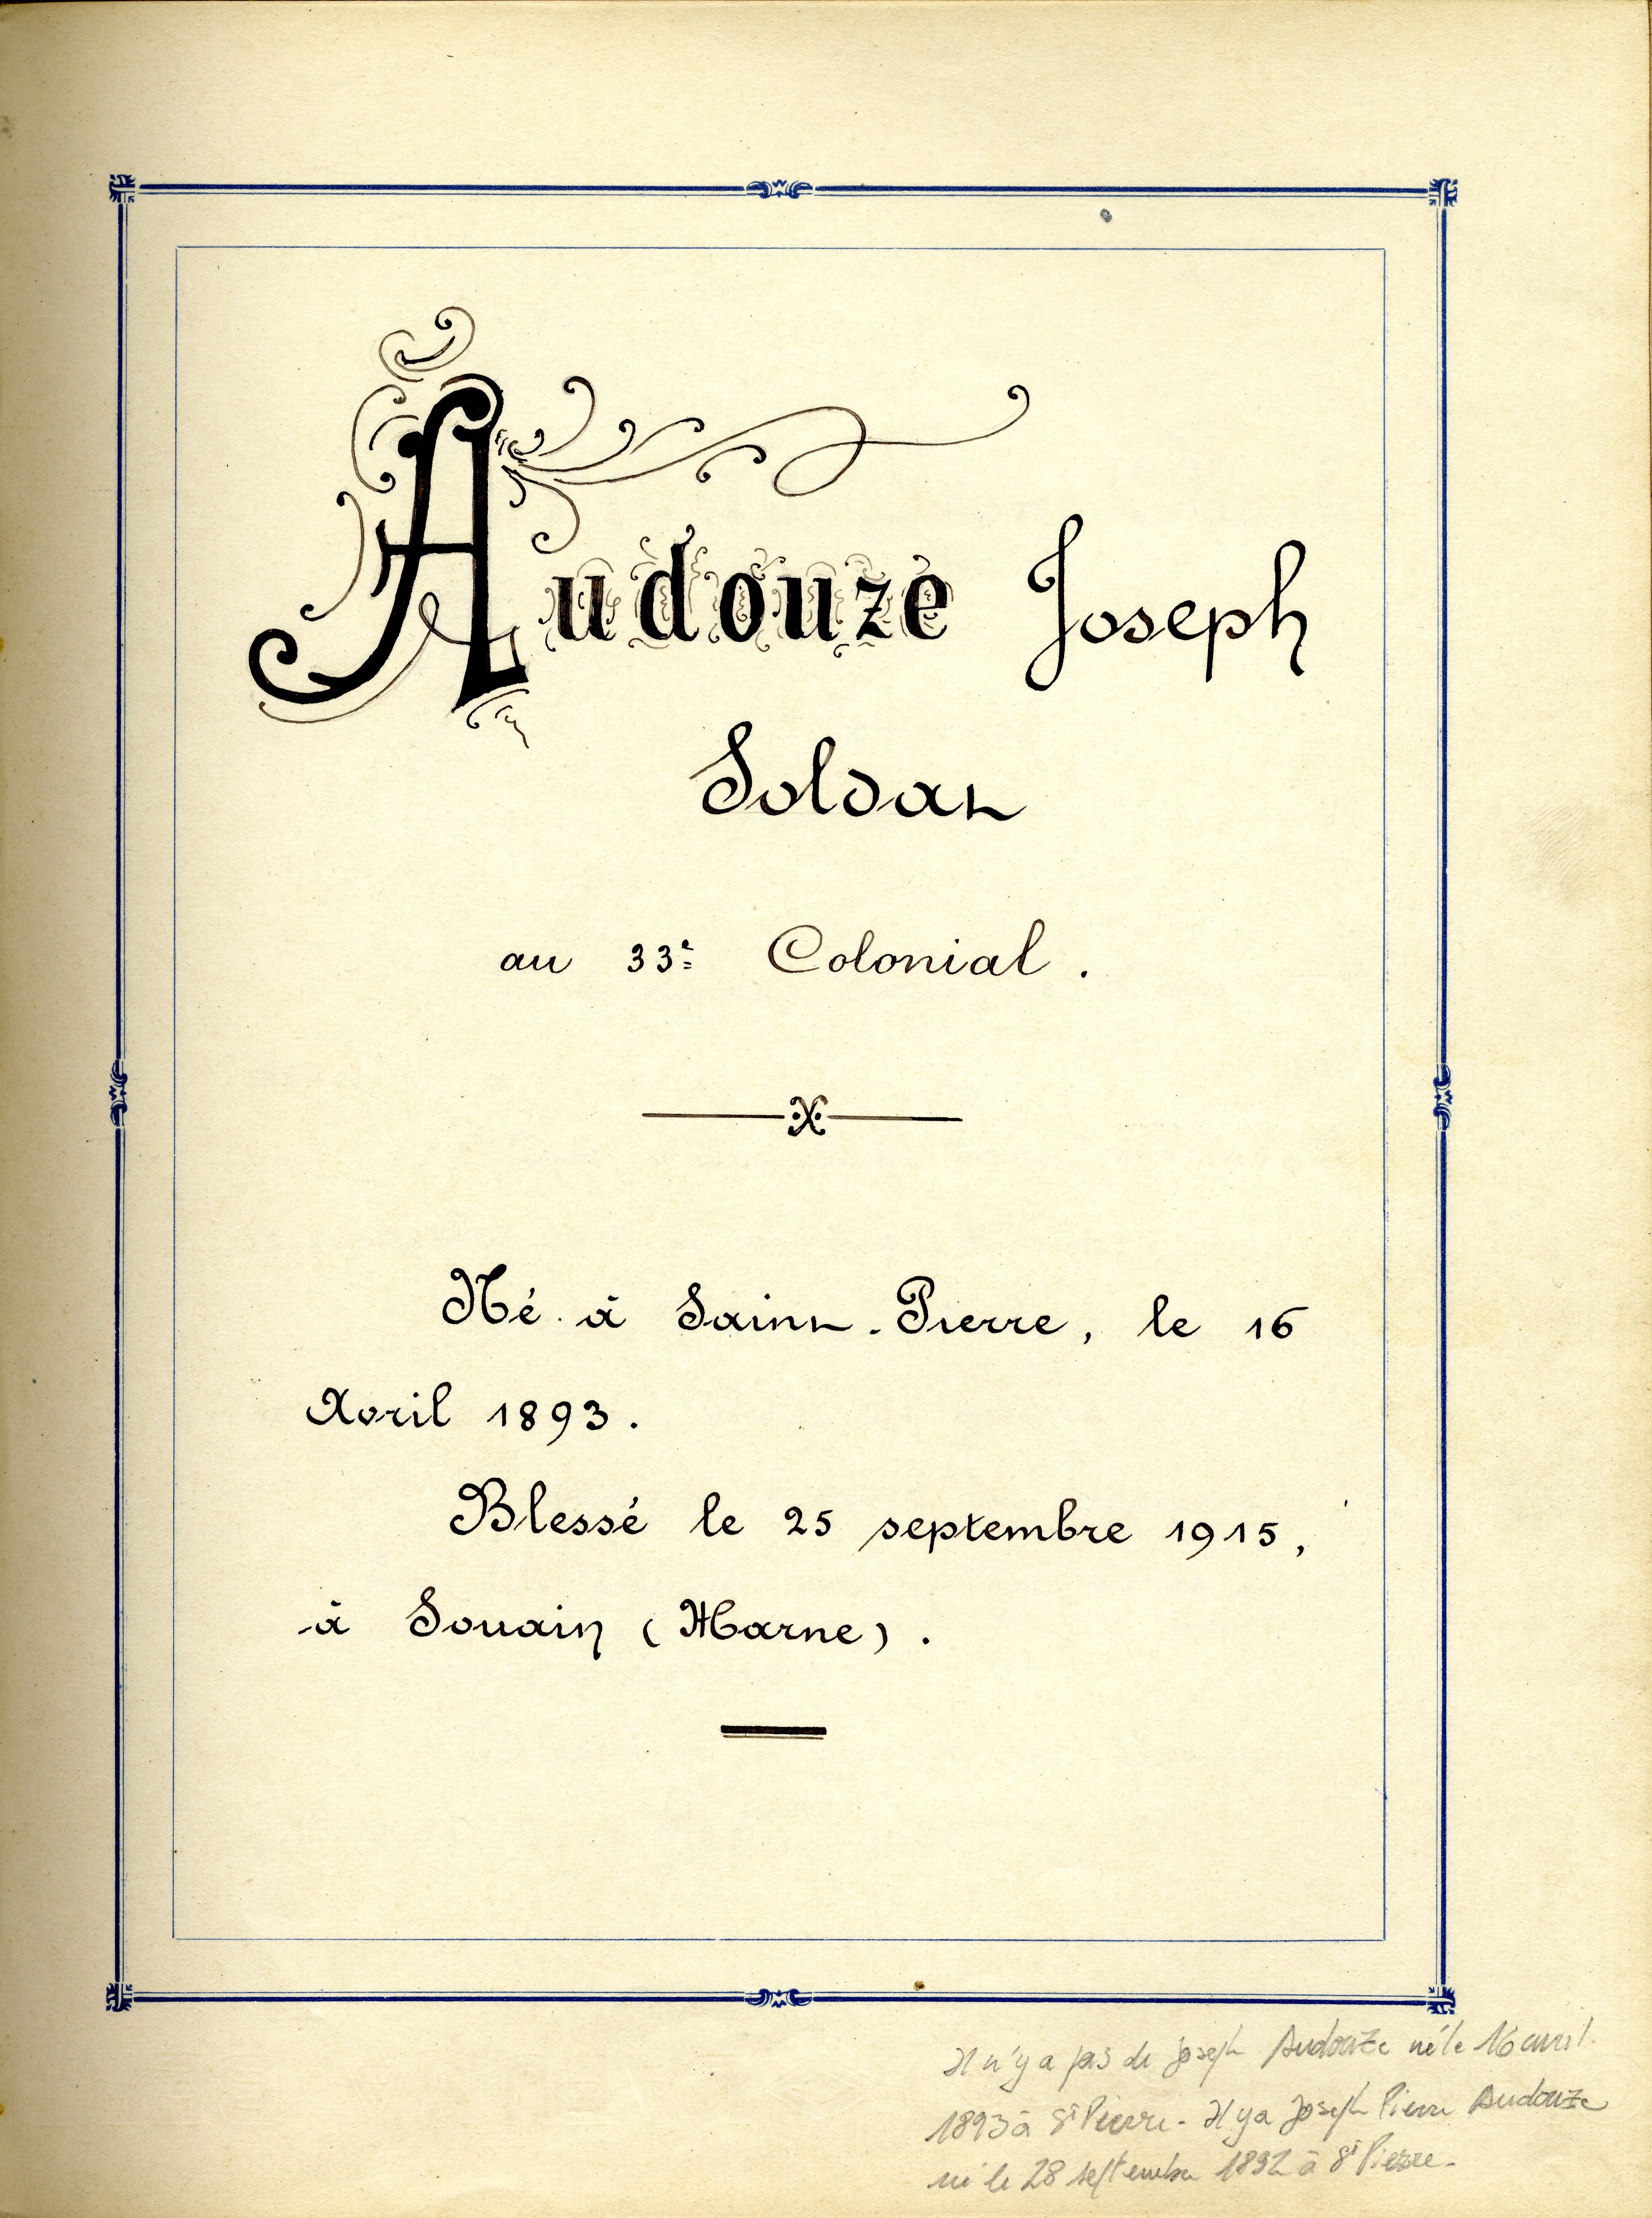 Audouze Joseph
Soldat
au 33e Colonial.
Né à Saint-Pierre, le 16
Avril 1893.
Blessé le 25 septembre 1915,
à Souain (Marne).
Il n'y a pas de Joseph Audouze né le 16 avril
1893 à St Pierre - Il y a Joseph Pierre Audouze
né le 28 septembre 1892 à St Pierre -